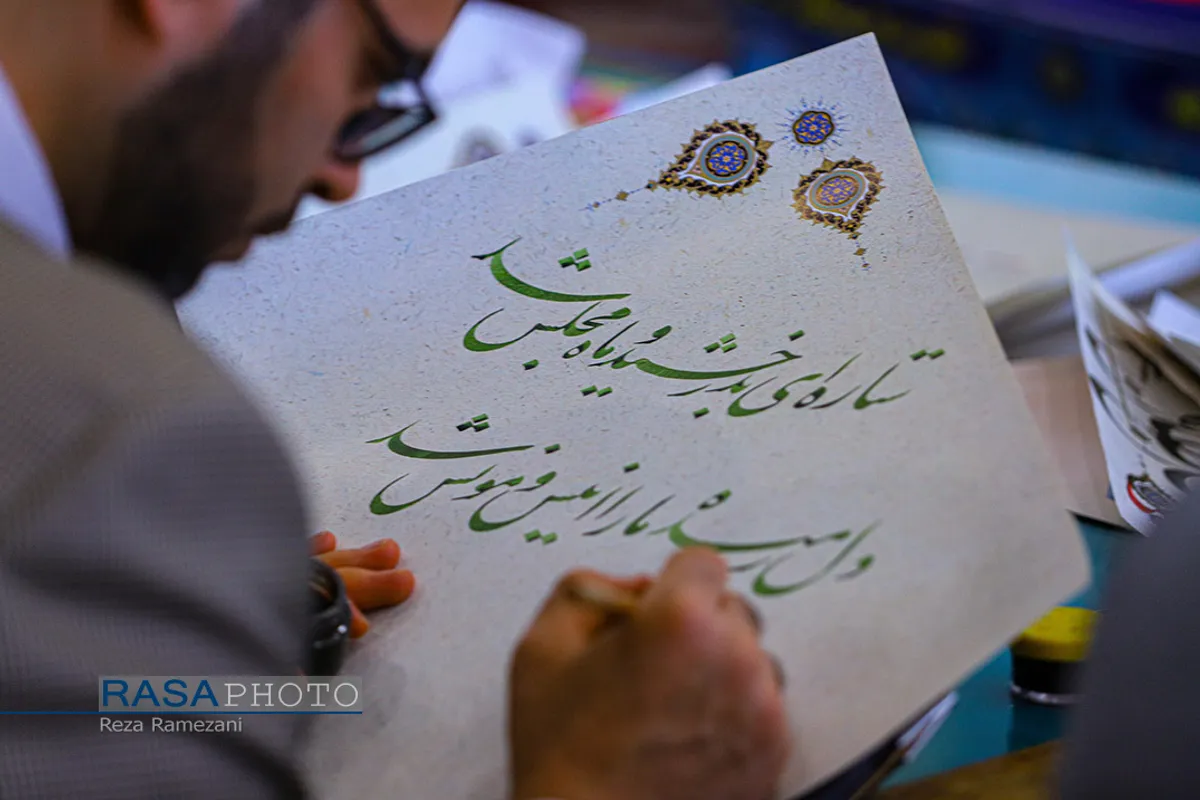 ستاره‌ای بدرخشید و ماه مجلس شد
دل رمیده ما را انیس و مونس شد
RASAPHOTO
Reza Ramezani